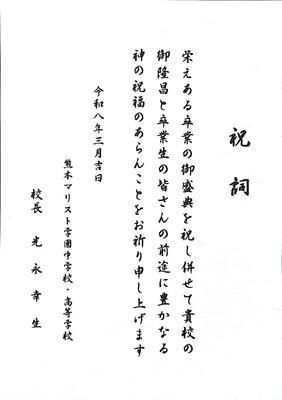 祝詞
栄えある卒業の御盛典を祝し併せて貴校の
御隆昌と卒業生の皆さんの前途に豊かなる
神の祝福のあらんことをお祈り申し上げます
令和八年三月吉日
熊本マリスト学園中学校・高等学校
校長 光永幸生